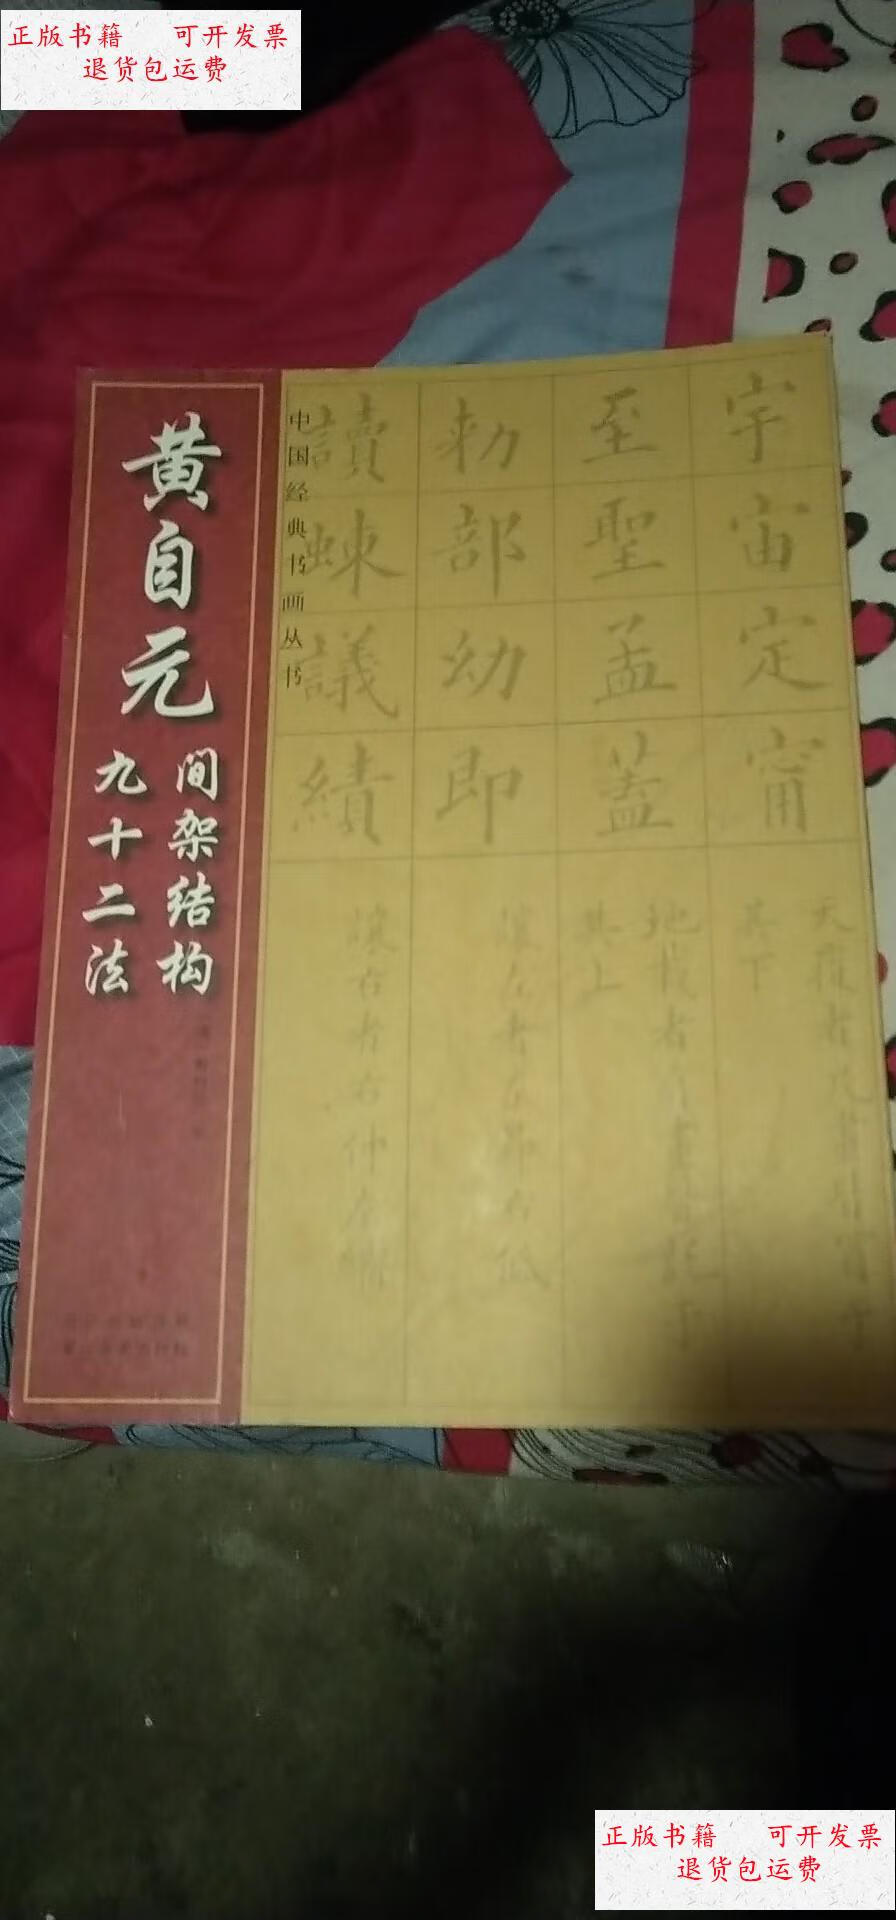 正版书籍 可开发票
退货包运费
黄自元
间架结构
九十二法
中国经典书画丛书
宇宙定甯
至聖孟蓋
勅部幼即
讀蝀議績
天覆者凡畫皆冒于
其下
地載者有畫皆託于
其上
讓左者左昂右低
讓右者右伸左縮
正版书籍 可开发票
退货包运费